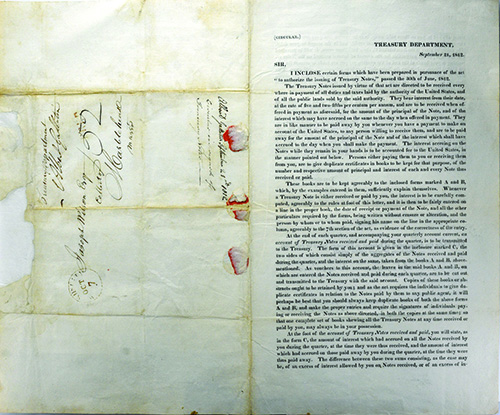 (CIRCULAR.)
TREASURY DEPARTMENT,
September 1812.
SIR,
I INCLOSE certain forms which have been prepared in pursuance of the act
"to authorize the issuing of Treasury Notes," passed the 30th of June, 1812.
The Treasury Notes issued by virtue of that act are directed to be received every
where in payment of all duties and taxes laid by the authority of the United States, and
of all the public lands sold by the said authority. They bear interest from their date,
at the rate of five and two-fifths per centum per annum, and are to be received when of-
fered in payment as aforesaid, for the amount of the principal of the Note, and of the
interest which may have accrued on the same to the day when offered in payment. They
are in like manner to be paid away by you whenever you have a payment to make on
account of the United States, to any person willing to receive them, and are to be paid
away for the amount of the principal of the Note and of the interest which shall have
accrued to the day when you shall make the payment. The interest accruing on the
Notes while they remain in your hands is to be accounted for to the United States, in
the manner pointed out below. Persons either paying them to you or receiving them
from you, are to give duplicate certificates in books to be kept for that purpose, of the
number and respective amount of principal and interest of each and every Note thus
received or paid.
These books are to be kept agreeably to the inclosed forms marked A and B,
which, by the examples entered in them, sufficiently explain themselves. Whenever
a Treasury Note is either received or paid by you, the interest is to be carefully com-
puted, agreeably to the rules at foot of this letter, and it is then to be fairly entered on
a line in the proper book, the date of receipt or payment of the Note, and all the other
particulars required by the forms, being written without erasure or alteration, and the
person by whom or to whom paid, signing his name on the line in the appropriate co-
lumns, agreeably to the 7th section of the act, as evidence of the correctness of the entry.
At the end of each quarter, and accompanying your quarterly account current, an
account of Treasury Notes received and paid during the quarter, is to be transmitted
to the Treasury. The form of this account is given in the inclosure marked C, the
two sides of which consist simply of the aggregates of the Notes received and paid
during the quarter, and the interest on the same, taken from the books A and B, above-
mentioned. As vouchers to this account, the leaves in the said books A and B, on
which are entered the Notes received and paid during each quarter, are to be cut out
and transmitted to the Treasury with the said account. Copies of these books or ab-
stracts ought to be retained by you; and as the act requires the individuals to give du-
plicate certificates in relation to the Notes paid by them to any public agent, it will
perhaps be best that you should always keep duplicate books of both the above forms
A and B, and make the proper entries and require the signatures of individuals pay-
ing or receiving the Notes as above directed, in both the copies at the same time; so
that one complete set of books shewing all the Treasury Notes at any time received or
paid by you, may always be in your possession.
At the foot of the account of Treasury Notes received and paid, you will state, as
in the form C, the amount of interest which had accrued on all the Notes received by
you during the quarter, at the time they were thus received, and the amount of interest
which had accrued on those paid away by you during the quarter, at the time they were thus
paid away. The difference between these two sums consisting, as the case may
be, of an excess of interest allowed by you on Notes received, or of an excess of in-
Joseph Wilson Esq
Collector
Marblehead